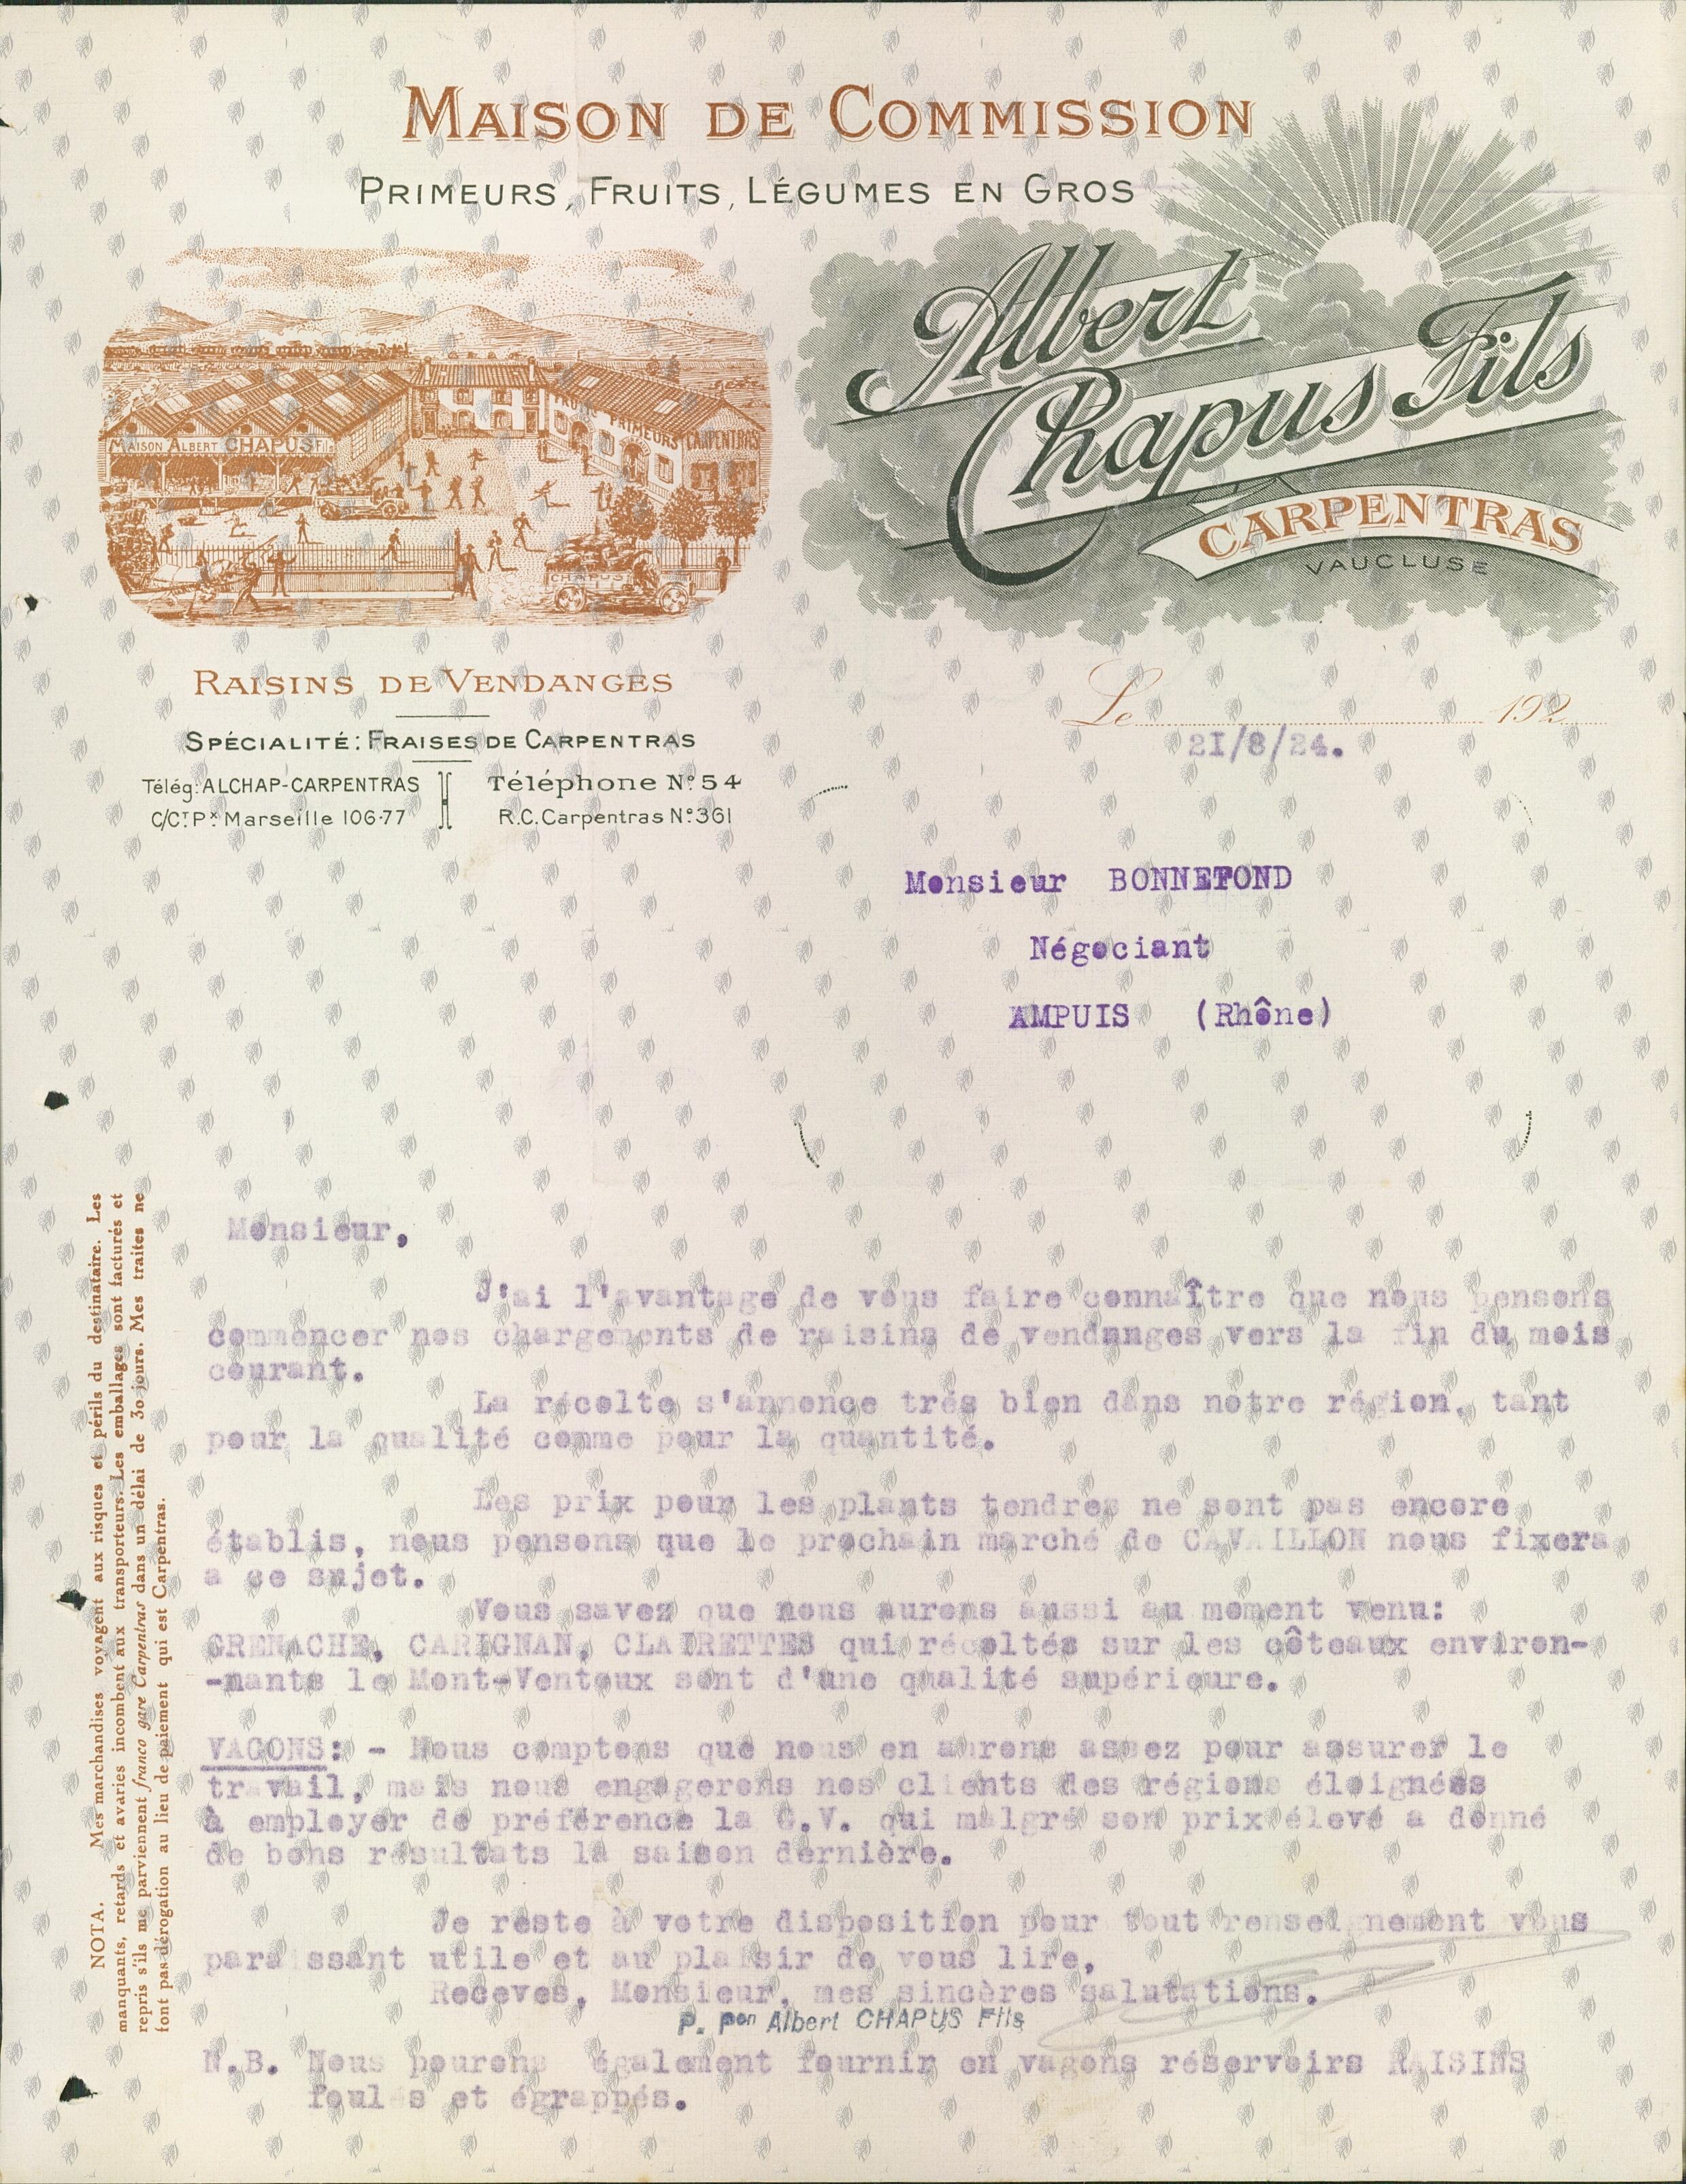 MAISON DE COMMISSION
PRIMEURS, FRUITS, LÉGUMES EN GROS
Albert
Chapus Fils
CARPENTRAS
VAUCLUSE
MAISON ALBERT CHAPUS FILS
PRIMEURS CARPENTRAS
CHAPUS
RAISINS DE VENDANGES
SPÉCIALITÉ: FRAISES DE CARPENTRAS
Télég: ALCHAP-CARPENTRAS
C/CT PX Marseille 106-77
Téléphone No 54
R.C. Carpentras No 361
Le 192
21/8/24.
Monsieur BONNEFOND
Négociant
AMPUIS (Rhône)
Monsieur,
J'ai l'avantage de vous faire connaître que nous pensons
commencer nos chargements de raisins de vendanges vers la fin du mois
courant.
La récolte s'annonce trés bien dans notre région, tant
pour la qualité comme pour la quantité.
Les prix pour les plants tendres ne sont pas encore
établis, nous pensons que le prochain marché de CAVAILLON nous fixera
a ce sujet.
Vous savez que nous aurons aussi au moment venu:
GRENACHE, CARIGNAN, CLAIRETTES qui récoltés sur les côteaux environ-
-nants le Mont-Ventoux sont d'une qualité supérieure.
VAGONS: - Nous comptons que nous en aurons assez pour assurer le
travail, mais nous engagerons nos clients des régions éloignées
à employer de préférence la G.V. qui malgré son prix élevé a donné
de bons résultats la saison dernière.
Je reste à votre disposition pour tout renseignement vous
paraissant utile et au plaisir de vous lire,
Recevez, Monsieur, mes sincères salutations.
P. Pon Albert CHAPUS Fils
N.B. Nous pourons également fournir en vagons réservoirs RAISINS
foulés et égrappés.
NOTA. Mes marchandises voyagent aux risques et périls du destinataire. Les
manquants, retards et avaries incombent aux transporteurs. Les emballages sont facturés et
repris s'ils me parviennent franco gare Carpentras dans un délai de 30 jours. Mes traites ne
font pas dérogation au lieu de paiement qui est Carpentras.